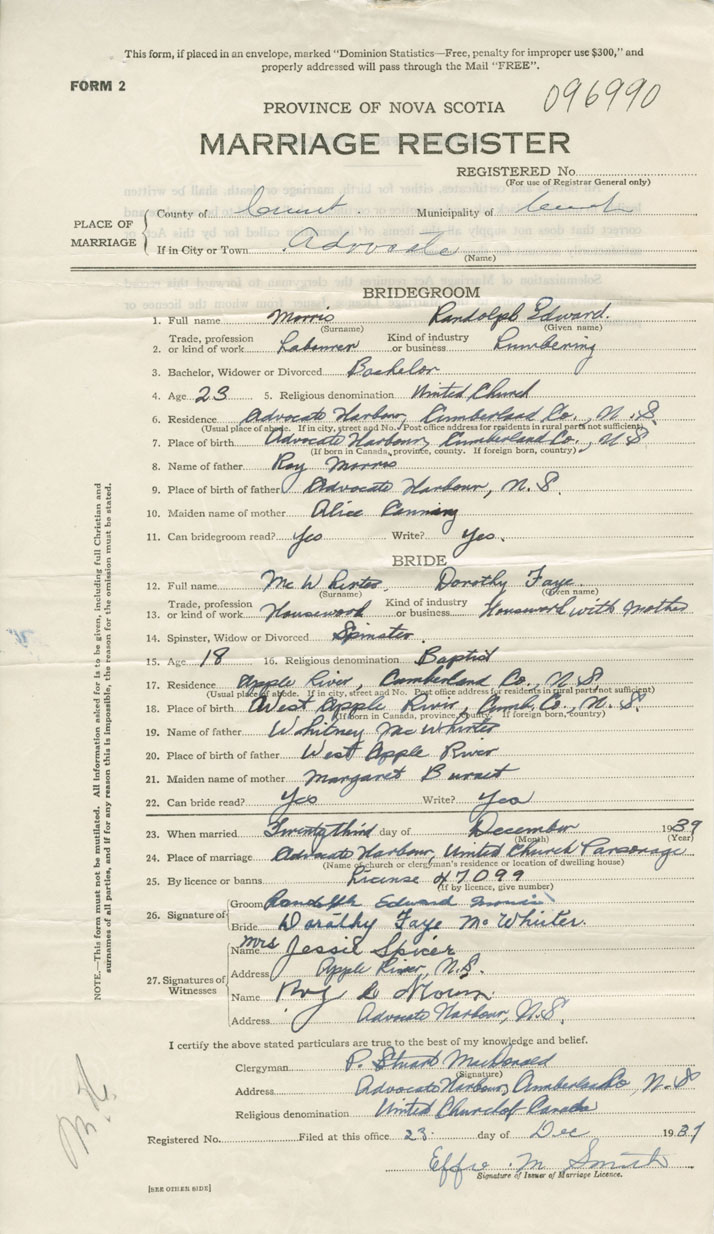 This form, if placed in an envelope, marked "Dominion Statistics—Free, penalty for improper use $300," and
properly addressed will pass through the Mail "FREE".
FORM 2
096990
PROVINCE OF NOVA SCOTIA
MARRIAGE REGISTER
REGISTERED No.
(For use of Registrar General only)
PLACE OF MARRIAGE
County of Cumb. Municipality of Cumb
If in City or Town Advocate
(Name)
BRIDEGROOM
1. Full name Morris Randolph Edward.
(Surname) (Given name)
2. Trade, profession or kind of work Labourer Kind of industry or business Lumbering
3. Bachelor, Widower or Divorced Bachelor
4. Age 23 5. Religious denomination United Church
6. Residence Advocate Harbour, Cumberland Co., N.S.
(Usual place of abode. If in city, street and No. Post office address for residents in rural parts not sufficient)
7. Place of birth Advocate Harbour, Cumberland Co., N.S
(If born in Canada, province, county. If foreign born, country)
8. Name of father Roy Morris
9. Place of birth of father Advocate Harbour, N.S.
10. Maiden name of mother Alice Canning
11. Can bridegroom read? Yes Write? Yes.
BRIDE
12. Full name McWhirter Dorothy Faye
(Surname) (Given name)
13. Trade, profession or kind of work Housework Kind of industry or business Housework with Mother
14. Spinster, Widow or Divorced Spinster
15. Age 18 16. Religious denomination Baptist
17. Residence Apple River, Cumberland Co., N.S
(Usual place of abode. If in city, street and No. Post office address for residents in rural parts not sufficient)
18. Place of birth West Apple River, Cumb. Co., N.S.
(If born in Canada, province, county. If foreign born, country)
19. Name of father Whitney McWhirter
20. Place of birth of father West Apple River
21. Maiden name of mother Margaret Burnet
22. Can bride read? Yes Write? Yes
23. When married Twenty third day of December 1939
(Month) (Year)
24. Place of marriage Advocate Harbour, United Church Parsonage
(Name of church or clergyman's residence or location of dwelling house)
25. By licence or banns License 47099
(If by licence, give number)
26. Signature of Groom Randolph Edward Morris
Bride Dorothy Faye McWhirter.
27. Signatures of Witnesses
Name Mrs Jessie Spicer
Address Apple River, N.S.
Name Roy Morris
Address Advocate Harbour, N.S.
I certify the above stated particulars are true to the best of my knowledge and belief.
Clergyman P. Stuart MacDonald
(Signature)
Address Advocate Harbour, Cumberland Co, N.S
Religious denomination United Church of Canada
Registered No. Filed at this office 23 day of Dec 1939
Effie M Smith
Signature of Issuer of Marriage Licence.
[SEE OTHER SIDE]
NOTE.—This form must not be mutilated. All information asked for is to be given, including full Christian and
surnames of all parties, and if for any reason this is impossible, the reason for the omission must be stated.